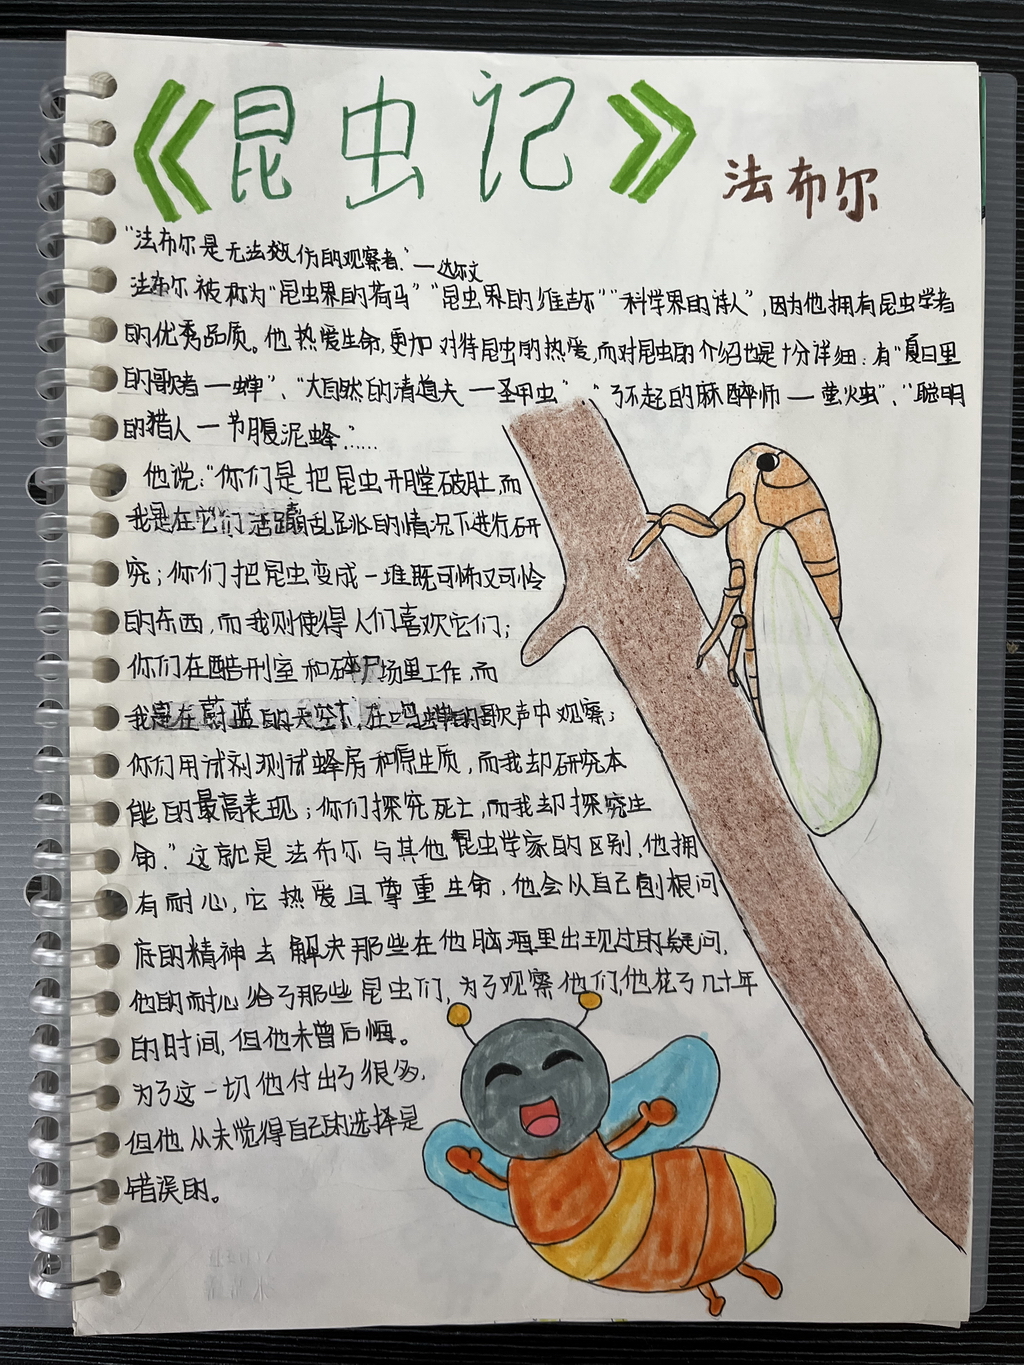 《昆虫记》
法布尔
“法布尔是无法效仿的观察者.”—达尔文
法布尔被称为“昆虫界的荷马”“昆虫界的维吉尔”“科学界的诗人”,因为他拥有昆虫学者
的优秀品质。他热爱生命,更加对待昆虫的热爱,而对昆虫的介绍也是十分详细:有“夏日里
的歌者—蝉”、“大自然的清道夫—圣甲虫”、“了不起的麻醉师—萤火虫”、“聪明
的猎人—节腹泥蜂”.....
他说:“你们是把昆虫开膛破肚,而
我是在它们活蹦乱跳的情况下进行研
究;你们把昆虫变成一堆既可怖又可怜
的东西,而我则使得人们喜欢它们;
你们在酷刑室和碎尸场里工作,而
我是在蔚蓝的天空下,在鸣蝉的歌声中观察;
你们用试剂测试蜂房和原生质,而我却研究本
能的最高表现;你们探究死亡,而我却探究生
命.”这就是法布尔与其他昆虫学家的区别,他拥
有耐心,它热爱且尊重生命,他会以自己刨根问
底的精神去解决那些在他脑海里出现过的疑问,
他的耐心给了那些昆虫们,为了观察他们,他花了几十年
的时间,但他未曾后悔。
为了这一切他付出了很多,
但他从未觉得自己的选择是
错误的。